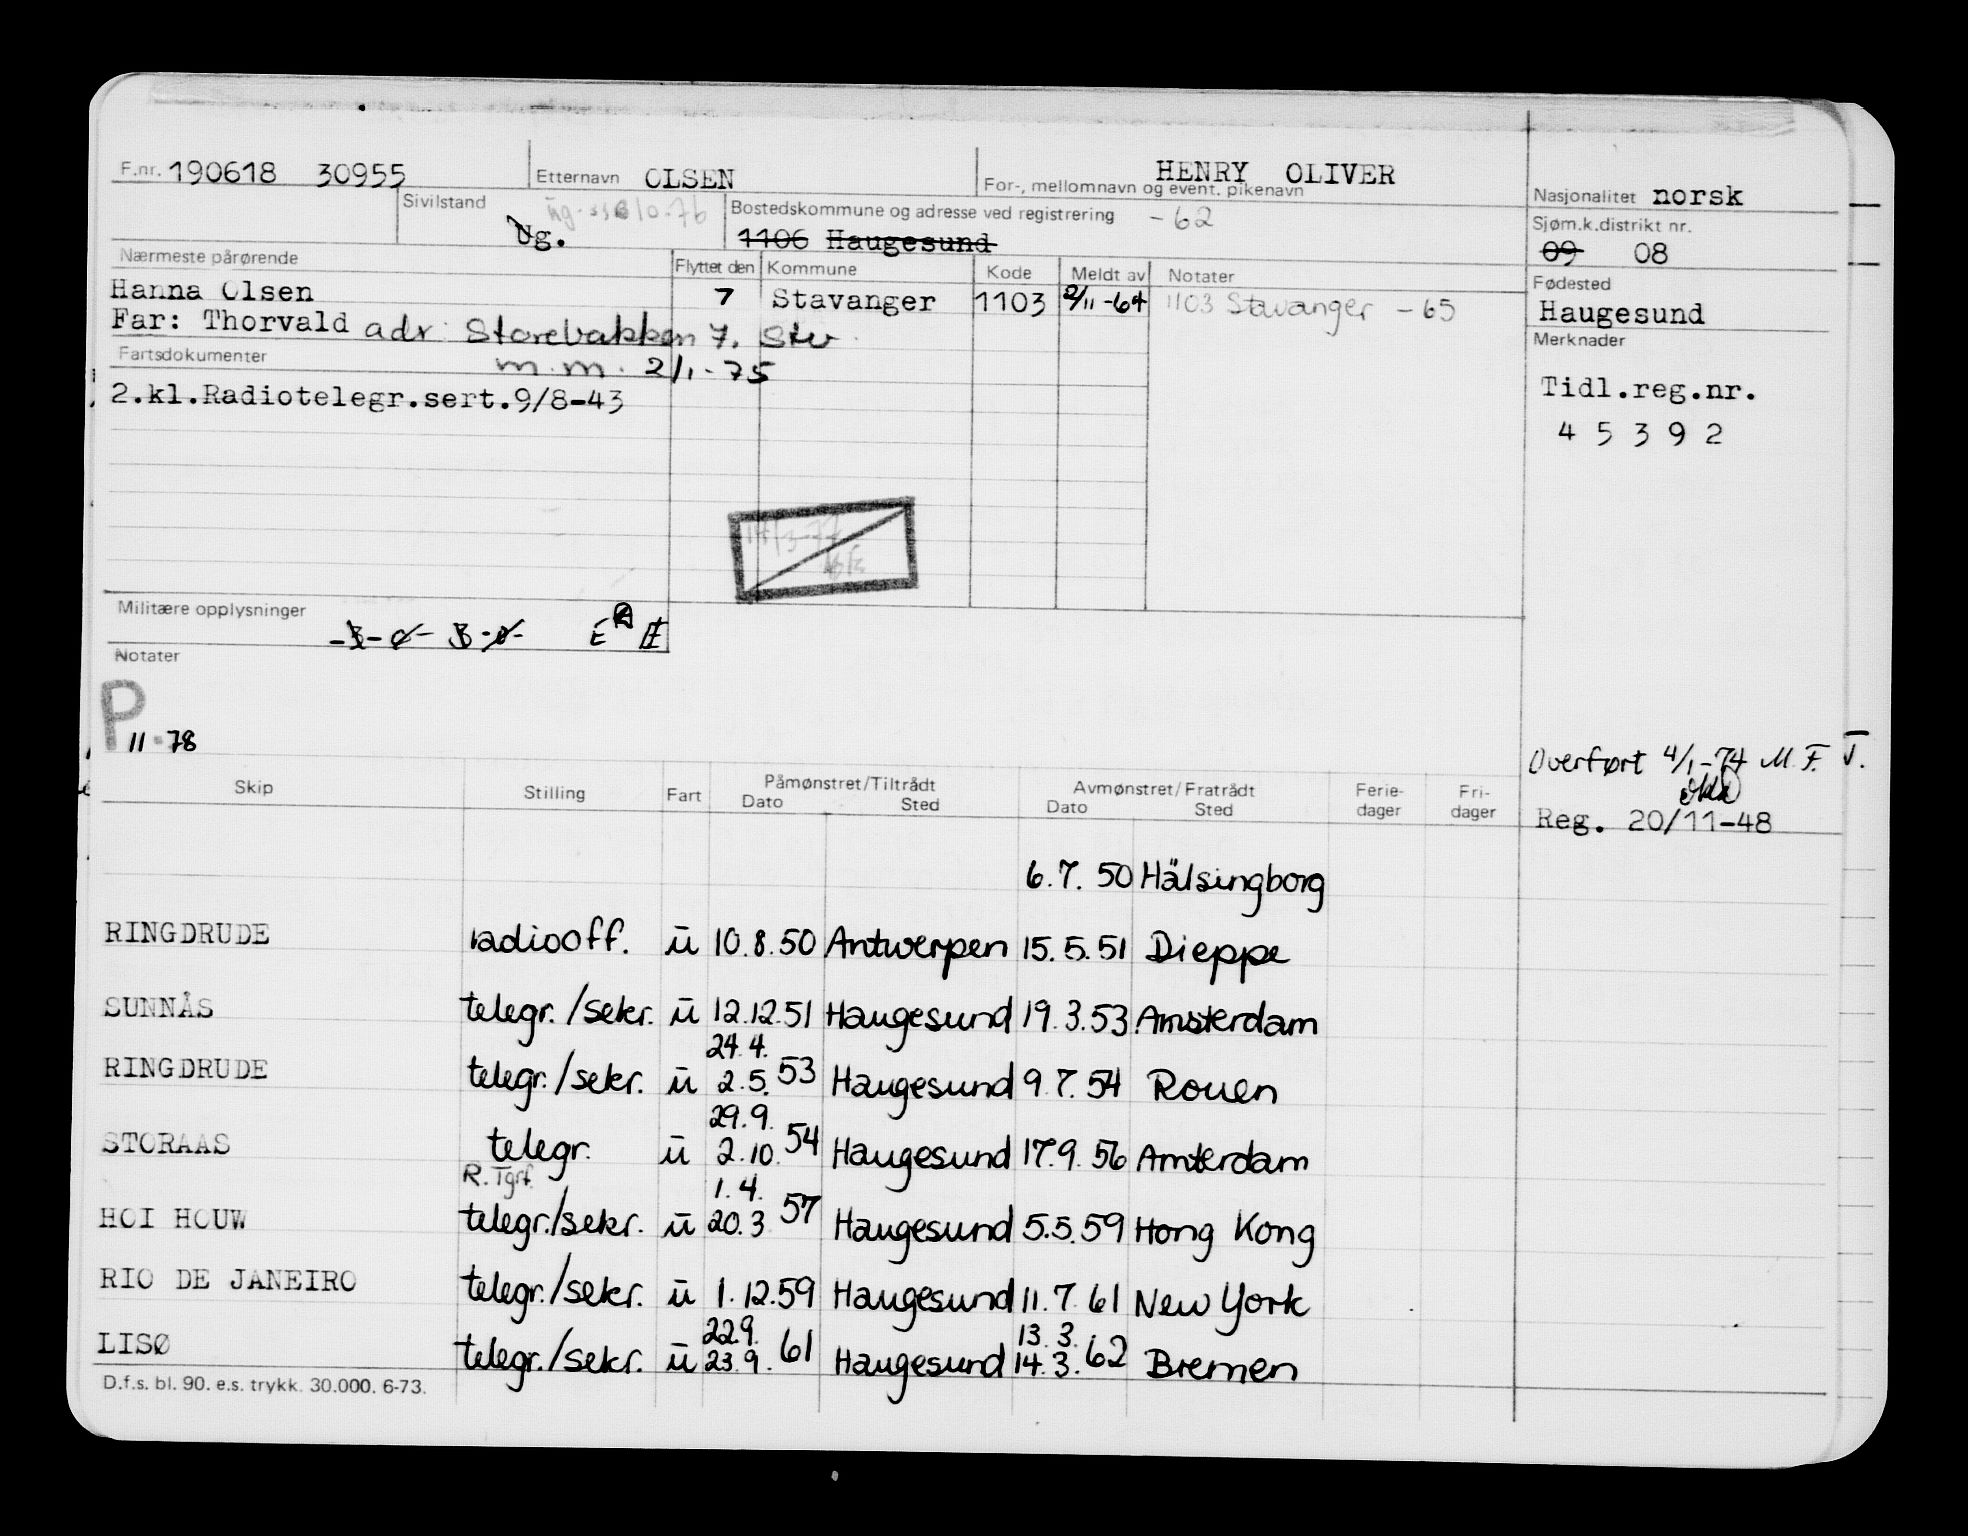 F.nr. 190618 30955 Etternavn OLSEN For-, mellomnavn og event. pikenavn HENRY OLIVER Nasjonalitet norsk
Sivilstand Ug. Bostedskommune og adresse ved registrering - 62 Sjøm.k.distrikt nr.
1106 Haugesund 09 08
Nærmeste pårørende Flyttet den Kommune Kode Meldt av Notater Fødested
Hanna Olsen 7 Stavanger 1103 2/11-64 1103 Stavanger - 65 Haugesund
Far: Thorvald adr: Storebakken 7. Stv. Merknader
Fartsdokumenter m.m. 2/1-75
2.kl.Radiotelegr.sert.9/8-43 Tidl.reg.nr.
4 5 3 9 2
14/3-77
Militære opplysninger
Notater
P 11-78
Overført 4/1-74 M.F.T.
Reg. 20/11-48
Skip Stilling Fart Påmønstret/Tiltrådt Dato Sted Avmønstret/Fratrådt Dato Sted Ferie-dager Fri-dager
6.7.50 Hälsingborg
RINGDRUDE radiooff. ū 10.8.50 Antwerpen 15.5.51 Dieppe
SUNNÅS telegr./sekr. ū 12.12.51 Haugesund 19.3.53 Amsterdam
24.4.
RINGDRUDE telegr./sekr. ū 2.5.53 Haugesund 9.7.54 Rouen
29.9.
STORAAS telegr. ū 2.10.54 Haugesund 17.9.56 Amterdam
R.Tgrf. 1.4.
HOI HOUW telegr./sekr. ū 20.3 57 Haugesund 5.5.59 Hong Kong
RIO DE JANEIRO telegr./sekr. ū 1.12.59 Haugesund 11.7.61 New York
22.9. 13.3.
LISØ telegr./sekr. ū 23.9.61 Haugesund 14.3.62 Bremen
D.f.s. bl. 90. e.s. trykk. 30.000. 6-73.